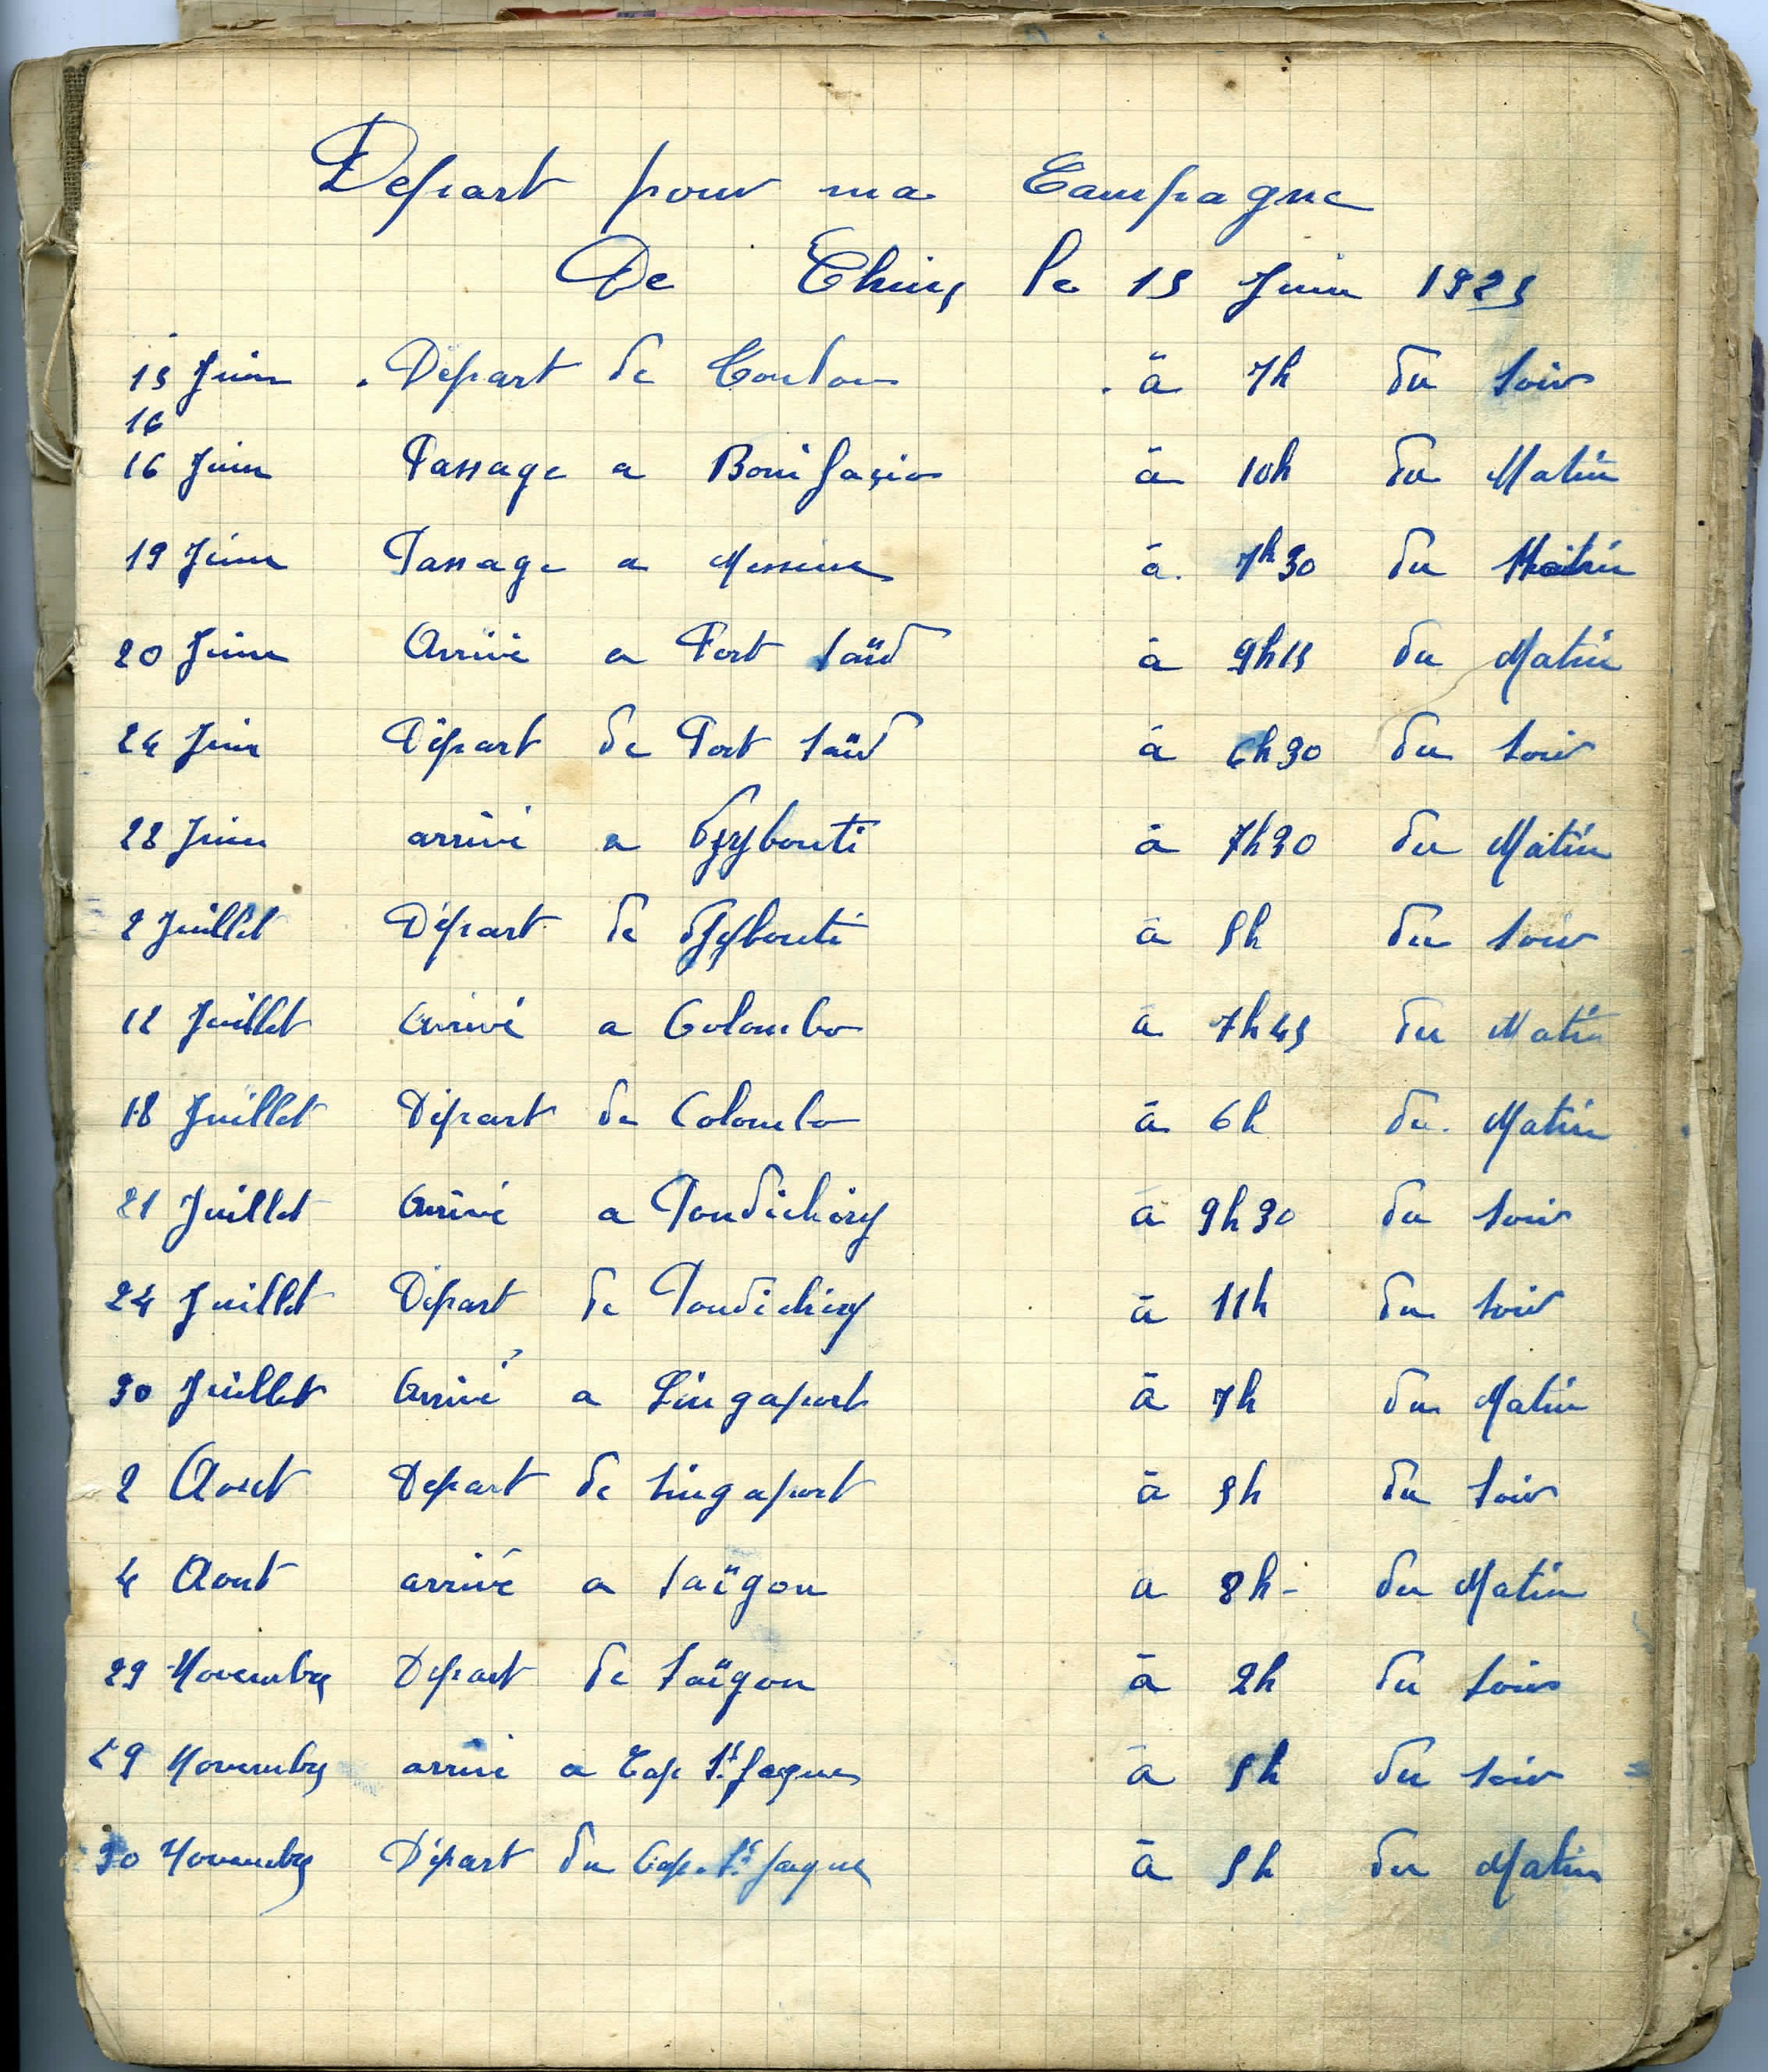 Départ pour ma Campagne
De Chine le 15 Juin 1925
15 Juin Départ de Toulon à 7h du soir
16
16 Juin Passage a Bonifaçio à 10h du Matin
19 Juin Passage a Messine à 7h30 du Matin
20 Juin Arrivé a Port Saïd à 9h15 du Matin
24 Juin Départ de Port Saïd à 6h30 du soir
28 Juin arrivé a Djybouti à 7h30 du Matin
2 Juillet Départ de Djybouti à 5h du soir
12 Juillet Arrivé a Colombo à 7h45 du Matin
18 Juillet Départ de Colombo à 6h du Matin
21 Juillet Arrivé a Pondichéry à 9h30 du soir
24 Juillet Départ de Pondichéry à 11h du soir
30 Juillet Arrivé a Singaport à 7h du Matin
2 Aout Depart de Singaport à 5h du soir
4 Aout arrivé a Saïgon a 8h - du Matin
29 Novembre Départ de Saïgon à 2h du soir
29 Novembre arrivé a Cap St Jaques à 5h du soir
30 Novembre Départ du Cap St Jaques à 5h du Matin